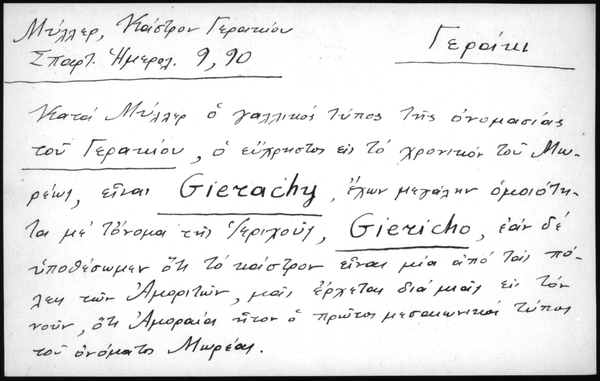 Μύλλερ, Κάστρον Γερακίου
Σπαρτ. Ἡμερολ. 9, 90
Γεράκι
Κατά Μύλλερ ὁ γαλλικός τύπος τῆς ὀνομασίας
τοῦ Γερακίου, ὁ εὔχρηστος εἰς τό χρονικόν τοῦ Μω-
ρέως, εἶναι Gierachy, ἔχων μεγάλην ὁμοιότη-
τα μέ τὄνομα τῆς Ἱεριχοῦς, Giericho, ἐάν δέ
ὑποθέσωμεν ὅτι τό κάστρον εἶναι μία ἀπό τάς πό-
λεις τῶν Ἀμοριτῶν, μᾶς ἔρχεται διά μιᾶς εἰς τόν
νοῦν, ὅτι Ἀμοραία ἦτον ὁ πρῶτος μεσαιωνικός τύπος
τοῦ ὀνόματος Μωρέας.